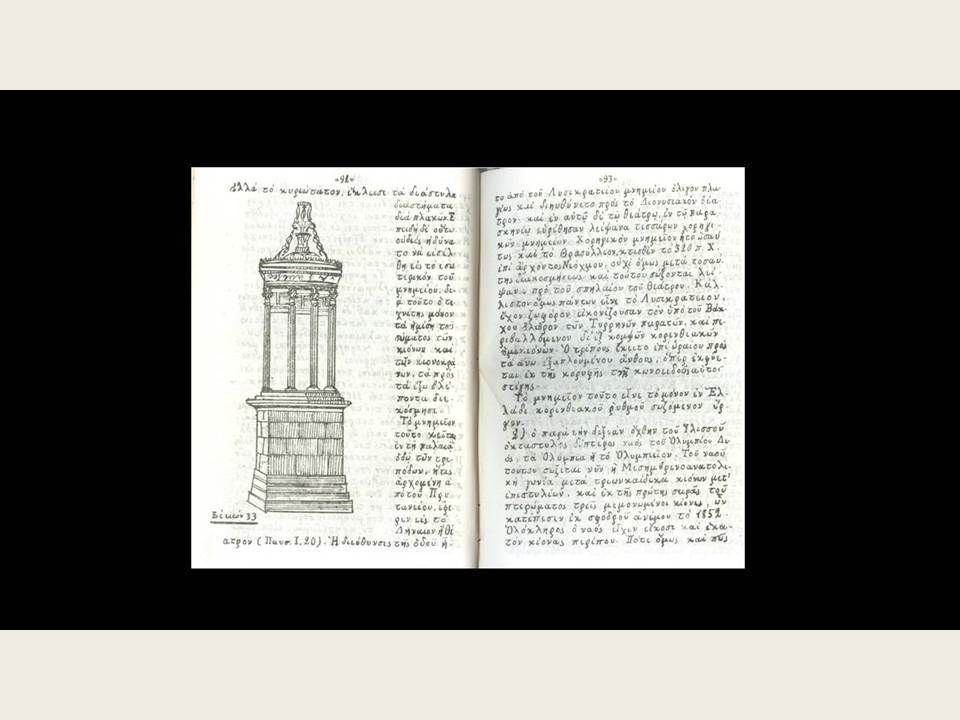 »92«
Ἀλλὰ τὸ κυριώτατον, ἔκλεισε τὰ διάστυλα
διαστήματα
διὰ πλακῶν. Ἐ
πειδὴ δὲ οὕτω
οὐδεὶς ἠδύνα
το νὰ εἰσέλ
θῃ εἰς τὸ ἐσω
τερικὸν τοῦ
μνημείου, δι
ὰ τοῦτο ὁ τε
χνίτης μόνον
τὰ ἡμίση τοῦ
σώματος τῶν
κιόνων καὶ
τῶν κιονοκρά
νων, τὰ πρὸς
τὰ ἔξω βλέ
ποντα διε
κόσμησε.
Τὸ μνημεῖον
τοῦτο κεῖται
ἐν τῇ παλαιᾷ
ὁδῷ τῶν τρι
πόδων, ἥτις
ἀρχομένη ἀ
πὸ τοῦ Πρυ
τανείου, ἔφε
ρεν εἰς τὸ
Λήναιον ἢ θέ
Εἰκὼν 33
ατρον (Παυσ. Ι, 20). Ἡ διεύθυνσις τῆς ὁδοῦ ἤ-
»93«
το ἀπὸ τοῦ Λυσικρατείου μνημείου ὀλίγον πλα
γίως καὶ διηυθύνετο πρὸς τὸ Διονυσιακὸν θέα
τρον. καὶ ἐν αὐτῷ δὲ τῷ θεάτρῳ, ἐν τῇ παρα
σκηνίῳ εὑρέθησαν λείψανα τεσσάρων χορηγι
κῶν μνημείων. Χορηγικὸν μνημεῖον ἦτο ὡσαύ
τως καὶ τὸ Θρασύλλειον, κτισθὲν τὸ 320 π. Χ.
ἐπὶ ἄρχοντος Νεόχμου, οὐχὶ ὅμως μετὰ τοσαύ
της διακοσμήσεως, καὶ τούτου σώζονται λεί
ψανα πρὸ τοῦ σπηλαίου τοῦ θεάτρου. Κάλ
λιστον ὅμως πάντων εἶνε τὸ Λυσικράτειον,
ἔχον ζωφόρον εἰκονίζουσαν τὸν ὑπὸ τοῦ Βάκ
χου ὄλεθρον τῶν Τυρρηνῶν πειρατῶν, καὶ πε
ριβαλλόμενον δι' ἓξ κομψῶν κορινθιακῶν
ἡμικιόνων. Ὁ τρίπους ἔκειτο ἐπὶ ὡραίου πρὸς
τὰ ἄνω ἐξαπλουμένου ἄνθους, ὅπερ ἐκφύε-
ται ἐκ τῆς κορυφῆς τῆς κωνοειδοῦς αὐτοῦ
στέγης.
Τὸ μνημεῖον τοῦτο εἶνε τὸ μόνον ἐν Ἑλ-
λάδι κορινθιακοῦ ῥυθμοῦ σωζόμενον ἔρ-
γον.
2) ὁ παρὰ τὴν δεξιὰν ὄχθην τοῦ Ἰλισσοῦ
ὀκτάστυλος δίπτερος ναὸς τοῦ Ὀλυμπίου Δι
ός, τὰ Ὀλύμπια ἢ τὸ Ὀλυμπιεῖον. Τοῦ ναοῦ
τούτου σώζεται νῦν ἡ Μεσημβρινοανατολι-
κὴ γωνία μετὰ τριων καίδεκα κιόνων μετ'
ἐπιστυλίων, καὶ ἐκ τῆς πρώτης σειρᾶς τοῦ
πτερώματος τρεῖς μεμονωμένοι κίονες, ὧν
κατέπεσεν ἐκ σφοδροῦ ἀνέμου τὸ 1852.
Ὁλόκληρος ὁ ναὸς εἶχεν εἴκοσι καὶ ἑκα-
τὸν κίονας περίπου. Πότε ὅμως καὶ πῶς